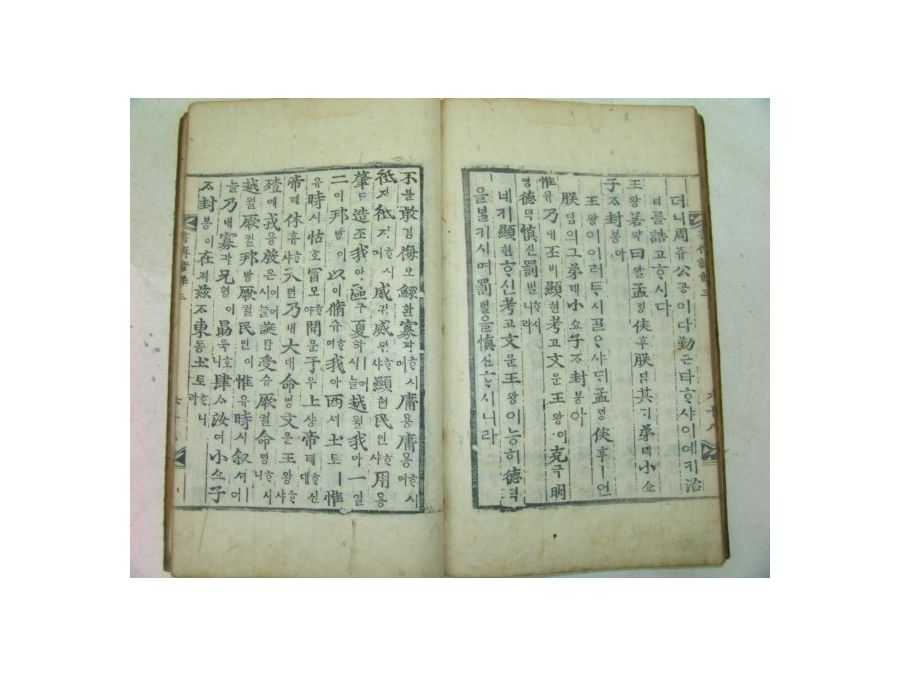 더니周쥬公공이다勤근타ᄒᆞ샤이예기治
티를誥고ᄒᆞ시다
王왕若약曰왈孟ᄆᆡᆼ侯후朕딤其기弟뎨小쇼
子ᄌᆞ封봉아
王왕이이러ᄐᆞ시ᄀᆞᄅᆞ샤ᄃᆡ孟ᄆᆡᆼ侯후ㅣ언
朕딤의그弟뎨小쇼子ᄌᆞ封봉아
惟유乃내丕비顯현考고文문王왕이克극明
명德덕愼신罰벌ᄒᆞ시니라
네기顯현ᄒᆞ신考고文문王왕이능히德덕
을ᄇᆞᆯ키시며罰벌을愼신ᄒᆞ시니라
不블敢감侮모鰥환寡과ᄒᆞ시며庸용庸용ᄒᆞ시며
祗지祗지ᄒᆞ시며威위威위ᄒᆞ샤顯현民민ᄒᆞ샤用용
肇됴造조我아區구夏하ᄒᆞ시늘越월我아一일
二이邦방이以이脩슈ᄒᆞ며我아西셔土토ㅣ惟
유時시怙호冒모ᄒᆞ야聞문于우上샹帝뎨ᄒᆞ신대
帝뎨休휴ᄒᆞ샤天텬乃내大대命명文문王왕ᄒᆞ샤
殪에戎융殷은이어시늘誕탄受슈厥궐命명ᄒᆞ시니
越월厥궐邦방厥궐民민이惟유時시叙셔ㅣ어
늘乃내寡과兄형이勗욱ᄒᆞ니肆ᄉᆞ汝여小쇼子
ᄌᆞ封봉이在ᄌᆡ玆ᄌᆞ東동土토ᄒᆞ니라